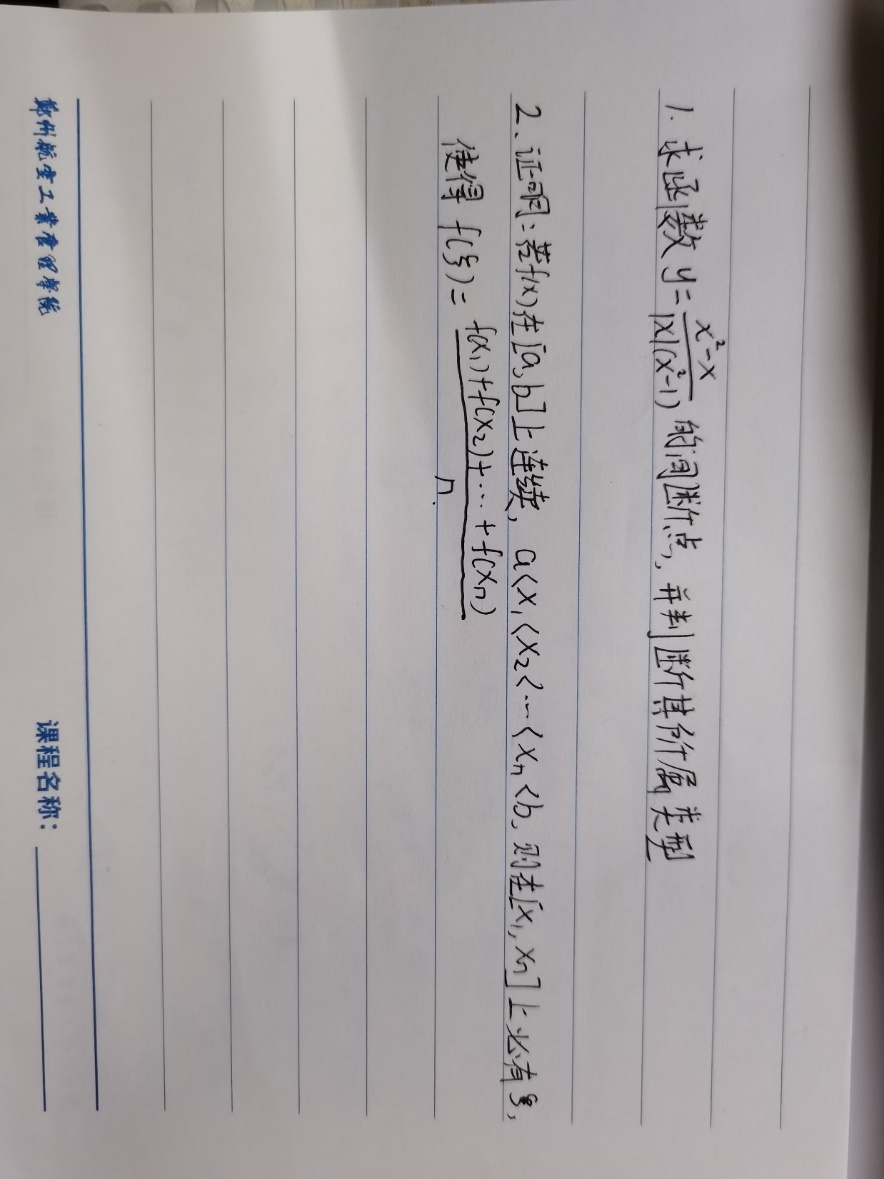 1. 求函数 y = \frac{x^2-x}{|x|(x^2-1)} 的间断点, 并判断其所属类型
2、证明: 若f(x)在[a,b]上连续, a<x_1<x_2<…<x_n<b, 则在[x_1,x_n]上必有ξ,
使得 f(ξ) = \frac{f(x_1)+f(x_2)+…+f(x_n)}{n}.
郑州航空工业管理学院 课程名称: